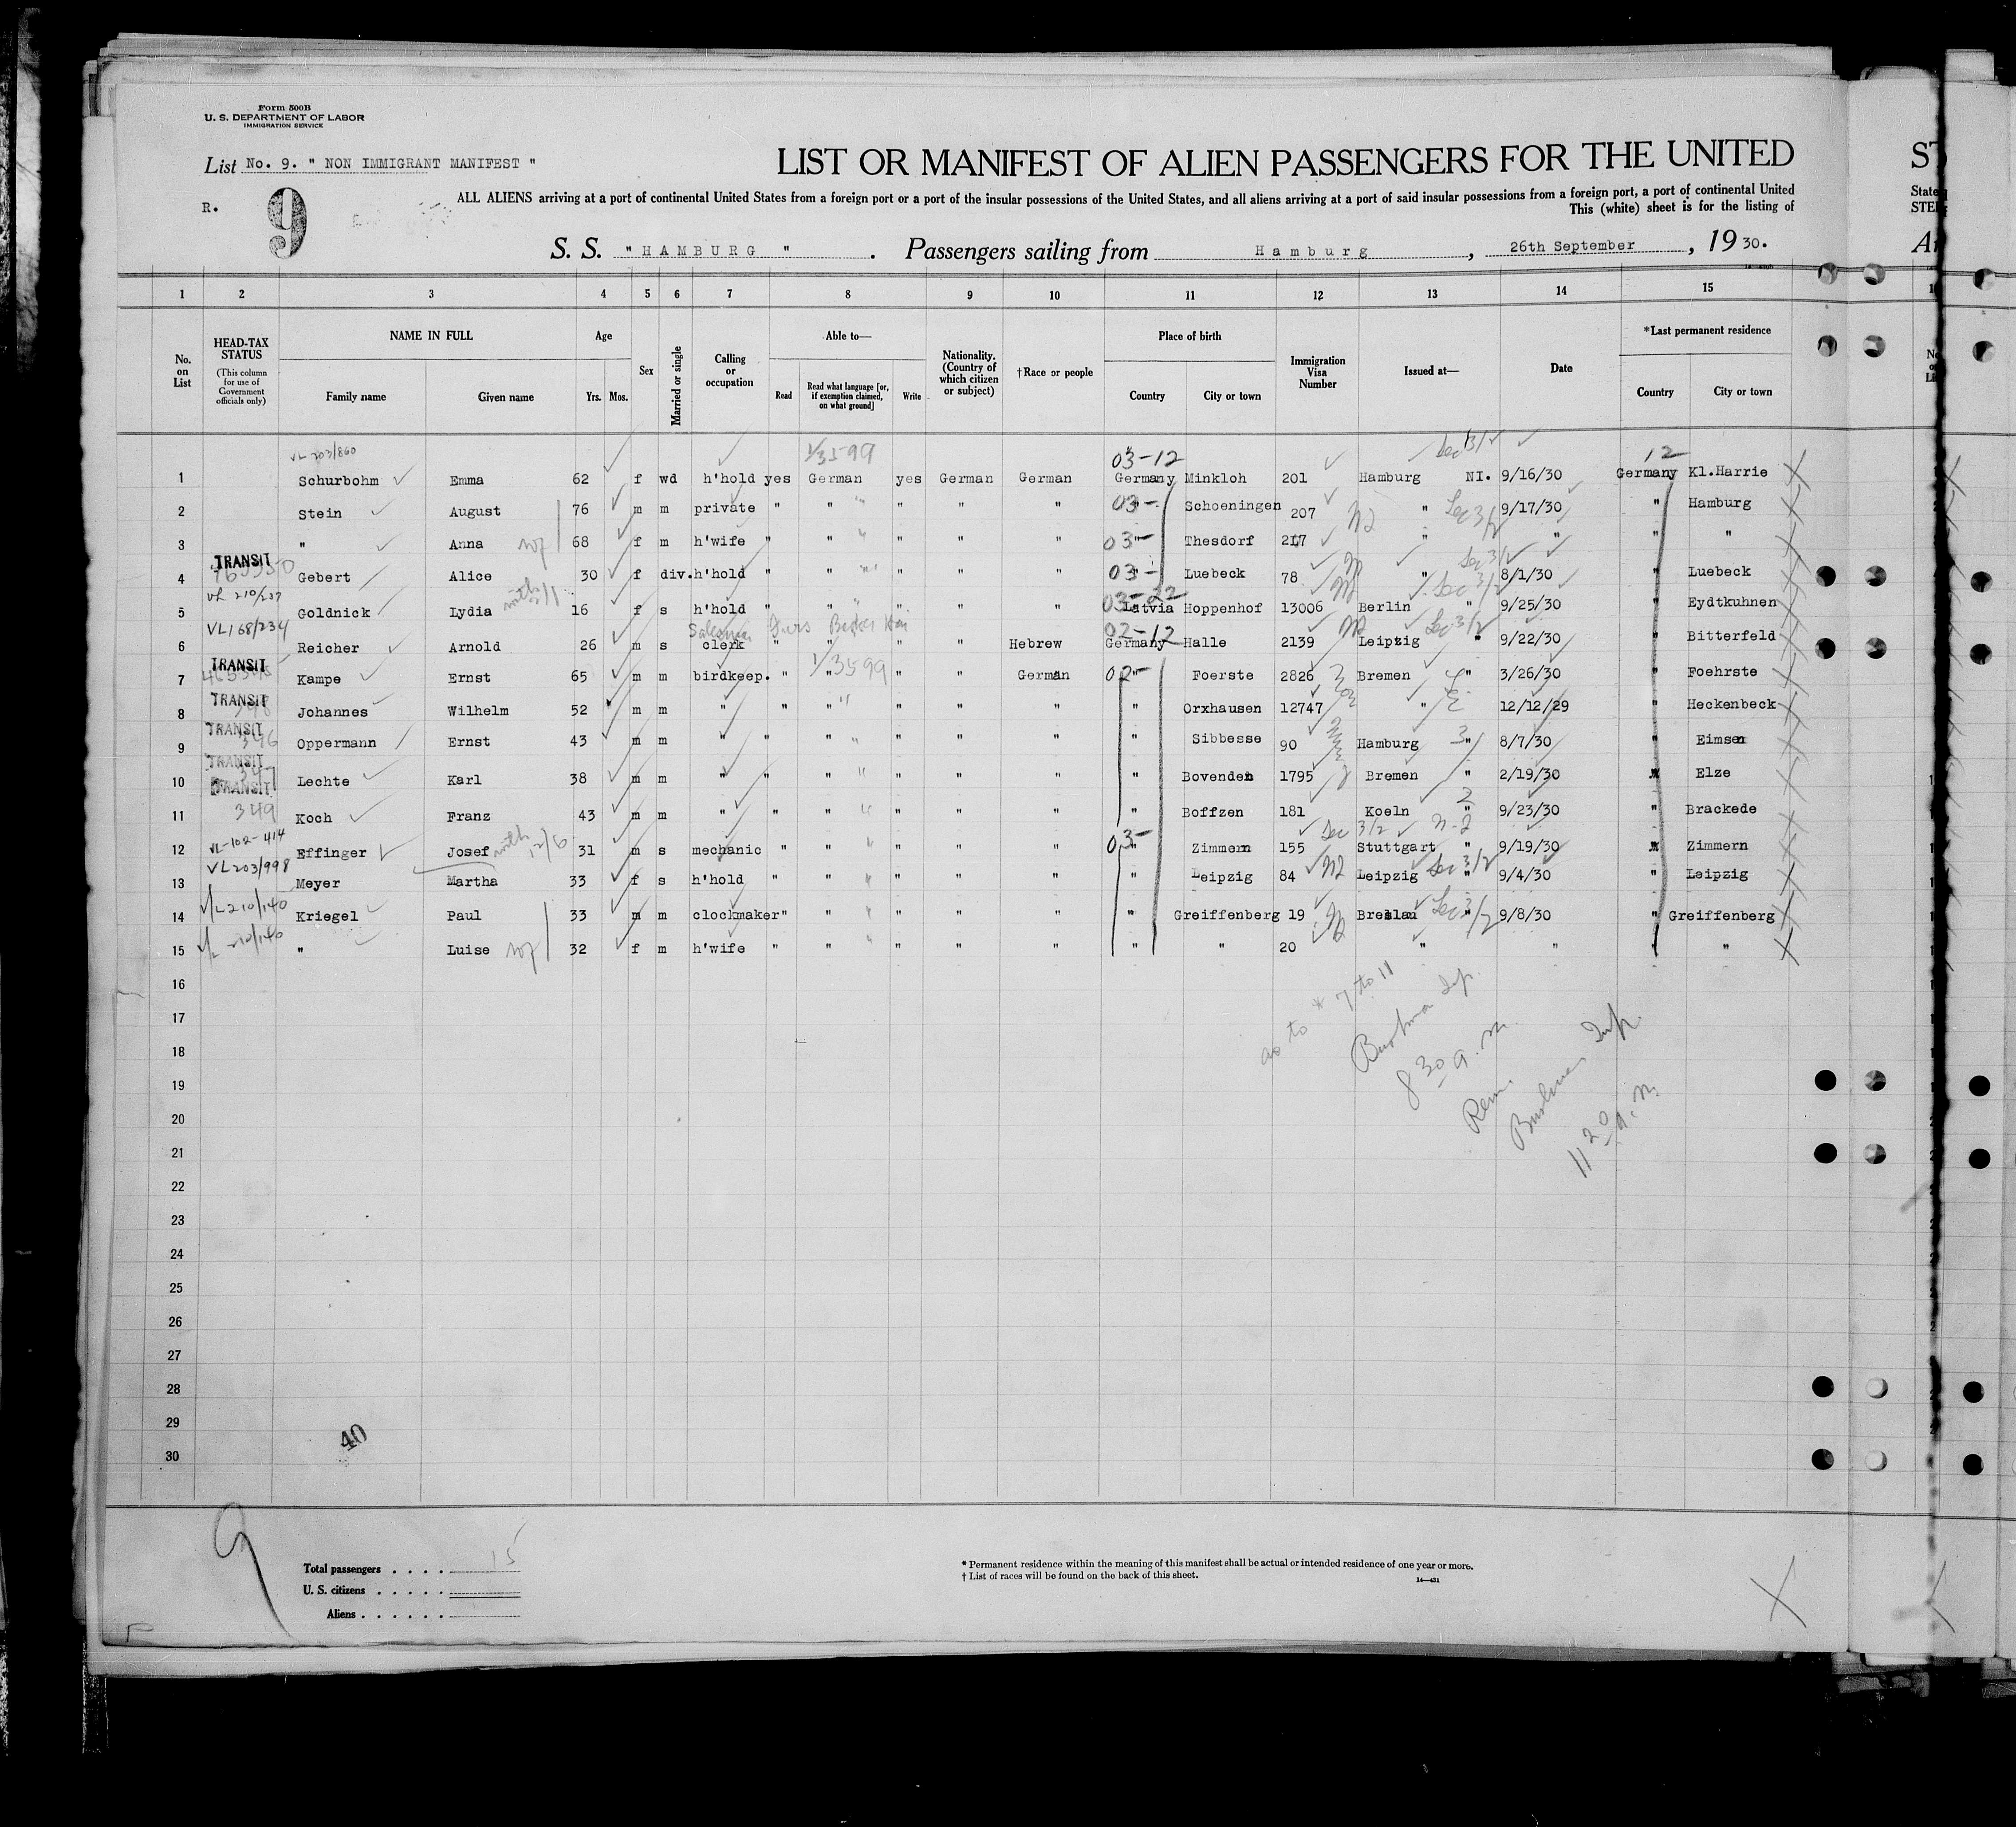 Form 500B
U. S. DEPARTMENT OF LABOR
IMMIGRATION SERVICE
List No. 9. " NON IMMIGRANT MANIFEST "
R.
9
LIST OR MANIFEST OF ALIEN PASSENGERS FOR THE UNITED
ALL ALIENS arriving at a port of continental United States from a foreign port or a port of the insular possessions of the United States, and all aliens arriving at a port of said insular possessions from a foreign port, a port of continental United
This (white) sheet is for the listing of
S. S. " HAMBURG " . Passengers sailing from Hamburg , 26th September , 19 30.
1 2 3 4 5 6 7 8 9 10 11 12 13 14 15
No. on List
HEAD-TAX STATUS
(This column for use of Government officials only)
NAME IN FULL
Family name Given name
Age
Yrs. Mos.
Sex
Married or single
Calling or occupation
Able to—
Read
Read what language [or, if exemption claimed, on what ground]
Write
Nationality. (Country of which citizen or subject)
†Race or people
Place of birth
Country City or town
Immigration Visa Number
Issued at—
Date
*Last permanent residence
Country City or town
VL 203/860 1/3599 03-12 Sec 3/2 12
1 Schurbohm Emma 62 f wd h'hold yes German yes German German Germany Minkloh 201 Hamburg NI. 9/16/30 Germany Kl.Harrie
2 Stein August 76 m m private " " " " " 03- " Schoeningen 207 " Sec 3/2 9/17/30 " Hamburg
3 " Anna 68 f m h'wife " " " " " 03- " Thesdorf 217 " " " "
TRANSIT Sec 3/2
4 Gebert Alice 30 f div. h'hold " " " " " 03- " Luebeck 78 " 8/1/30 " Luebeck
VL 210/237 03-22 Sec 3/2
5 Goldnick Lydia 16 f s h'hold " " " " " Latvia Hoppenhof 13006 Berlin " 9/25/30 " Eydtkuhnen
VL168/234 Salesman 02-12 Sec 3/2
6 Reicher Arnold 26 m s clerk " " " " Hebrew Germany Halle 2139 Leipzig " 9/22/30 " Bitterfeld
TRANSIT 1/3599
7 Kampe Ernst 65 m m birdkeep. " " " " German 02- " Foerste 2826 Bremen " 3/26/30 " Foehrste
TRANSIT
8 Johannes Wilhelm 52 m m " " " " " " " Orxhausen 12747 " 12/12/29 " Heckenbeck
TRANSIT
346
9 Oppermann Ernst 43 m m " " " " " " " Sibbesse 90 Hamburg " 8/7/30 " Eimsen
TRANSIT
10 Lechte Karl 38 m m " " " " " " " Bovenden 1795 Bremen " 2/19/30 " Elze
TRANSIT
349
11 Koch Franz 43 m m " " " " " " " Boffzen 181 Koeln " 9/23/30 " Brackede
VL-102-414 Sec 3/2
12 Effinger Josef 31 m s mechanic " " " " " 03- " Zimmern 155 Stuttgart " 9/19/30 " Zimmern
VL203/998
13 Meyer Martha 33 f s h'hold " " " " " " Leipzig 84 Leipzig Sec 3/2 " 9/4/30 " Leipzig
VL210/140
14 Kriegel Paul 33 m m clockmaker " " " " " " Greiffenberg 19 Breslau Sec 3/2 " 9/8/30 " Greiffenberg
210/140
15 " Luise 32 f m h'wife " " " " " " " 20 " " " "
16
17
18
19
20
21
22
23
24
25
26
27
28
29
30
as to * 7 to 11
8 30 a.m.
Rem.
Insp.
11 20 a.m.
40
9
Total passengers . . . . 15
U. S. citizens . . . . .
Aliens . . . . . .
* Permanent residence within the meaning of this manifest shall be actual or intended residence of one year or more.
† List of races will be found on the back of this sheet.
14—431